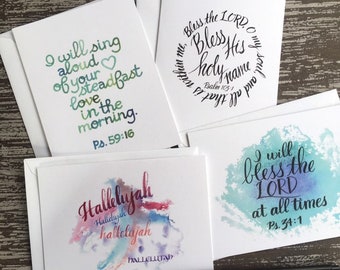 I will sing
aloud
of your
steadfast
love
in the
morning.
Ps. 59:16
Bless the LORD, O my soul and all that is within me
Bless
His
holy
name
Psalm 103:1
Hallelujah
Hallelujah
hallelujah
HALLELUJAH
I will
bless the
LORD
at all times
Ps. 34:1